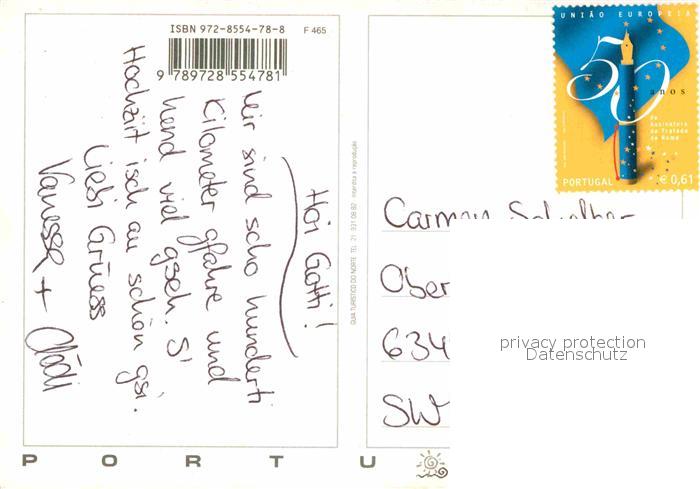 ISBN 972-8554-78-8
F 465
9 789728 554781
Hoi Gotti!
Wir sind scho hunderti
Kilometer gfahre und
hend viel gseh. S'
Hochziit isch au schön gsi.
Liebi Grüess
Vanessa +
GUIA TURÍSTICO DO NORTE TEL 21
interdita a reprodução
UNIÃO EUROPEIA
50
anos
da
Assinatura
do Tratado
de Roma
PORTUGAL € 0,61
Carmen
Ober
634
SW
privacy protection
Datenschutz
P O R T U